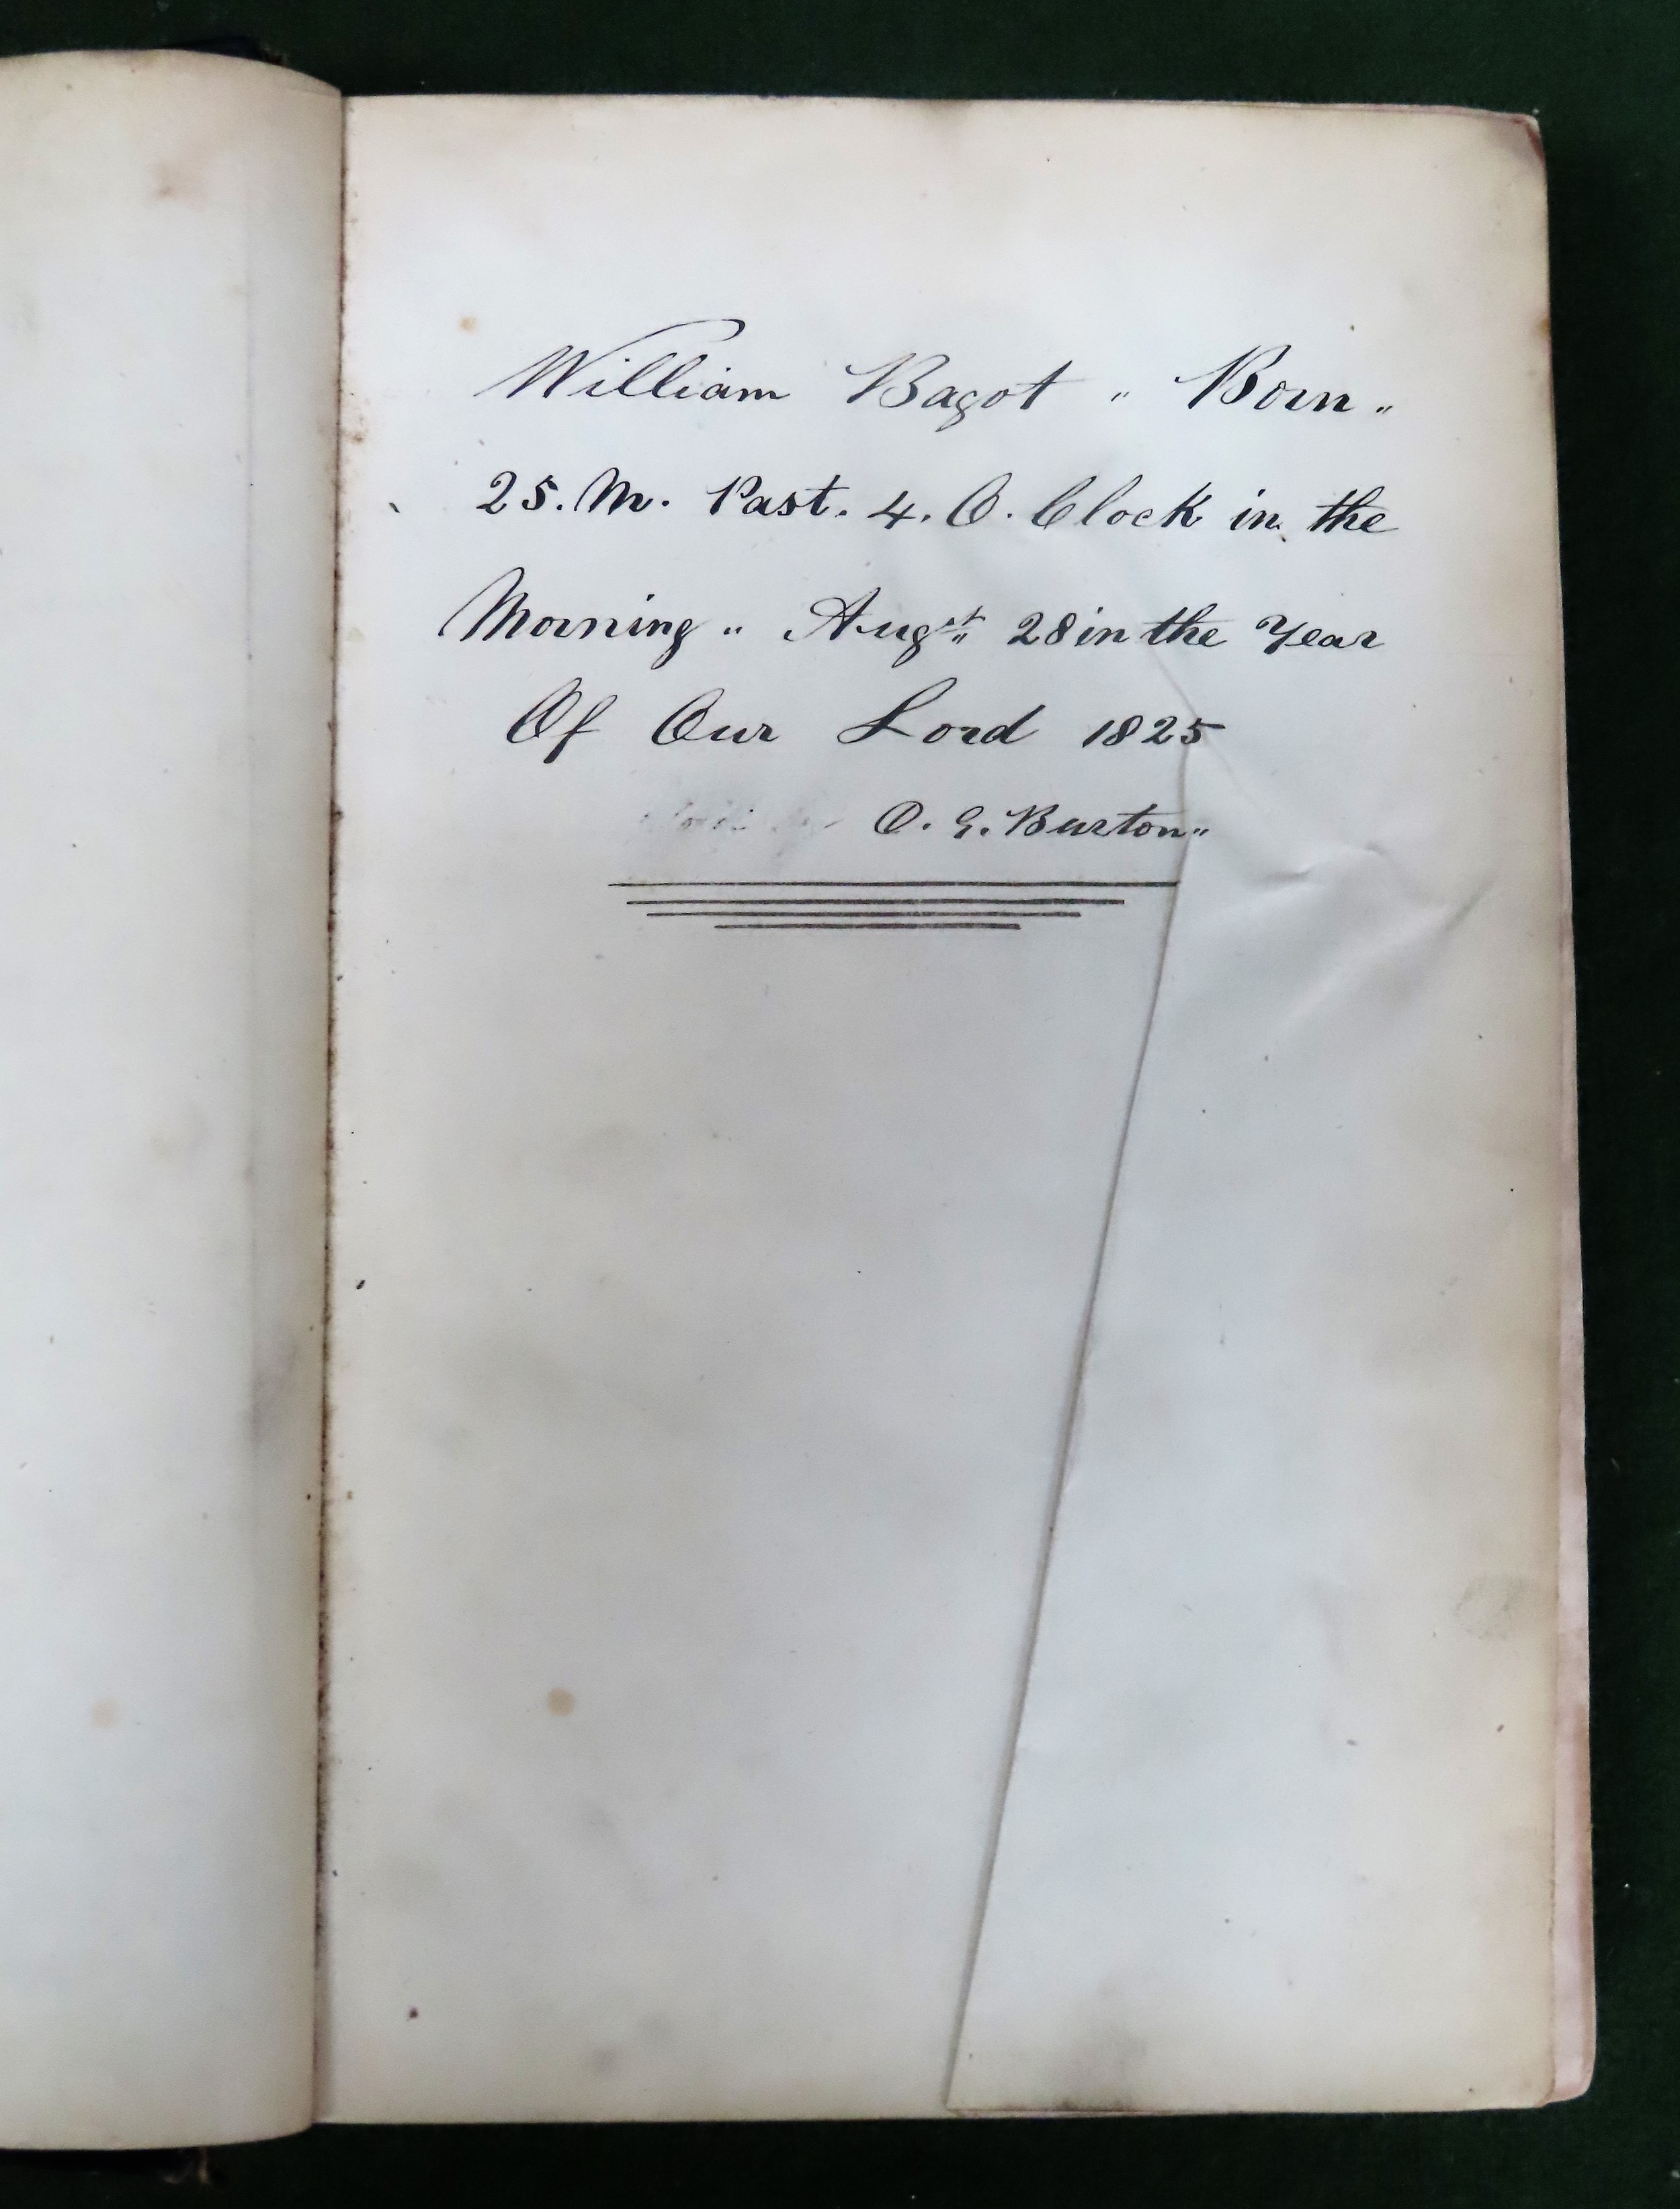 William Bagot " Born "
25. M. Past. 4. O. Clock in the
Morning " Augst " 28 in the Year
Of Our Lord 1825
O. G. Burton "